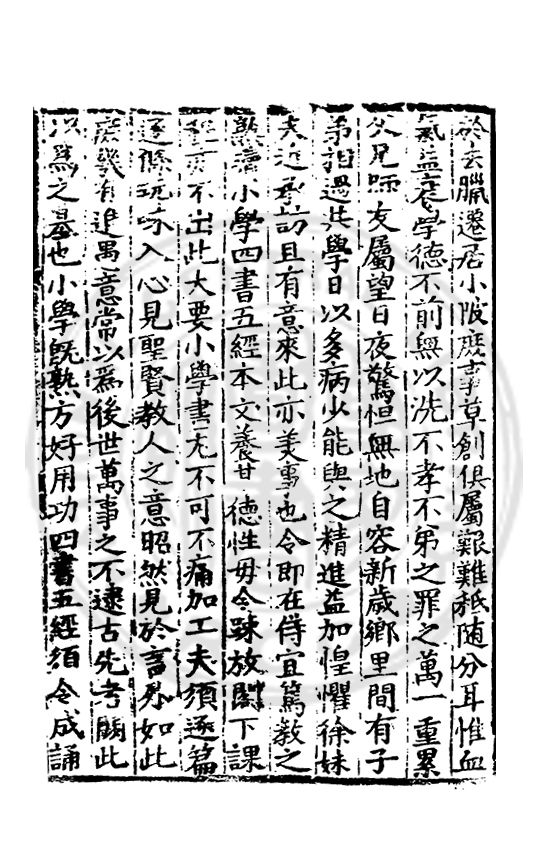 於去臘遷居小陂庶事草創俱屬艱難秪随分耳惟血
氣益衰學德不前無以洗不孝不弟之罪之萬一重累
父兄師友屬望日夜驚怛無地自容新歲鄉里間有子
弟相過共學日以多病少能與之精進益加惶懼徐妹
夫近承訪且有意來此亦美事也令即在侍宜篤教之
熟讀小學四書五經本文養其德性毋令踈放閣下課
不出此大要小學書尤不可不痛加工夫須逐篇
逐條玩味入心見聖賢教人之意昭然見於言外如此
庶幾有進愚意常以為後世萬事之不逮古先者闕此
以為之基也小學既熟方好用功四書五經須令成誦